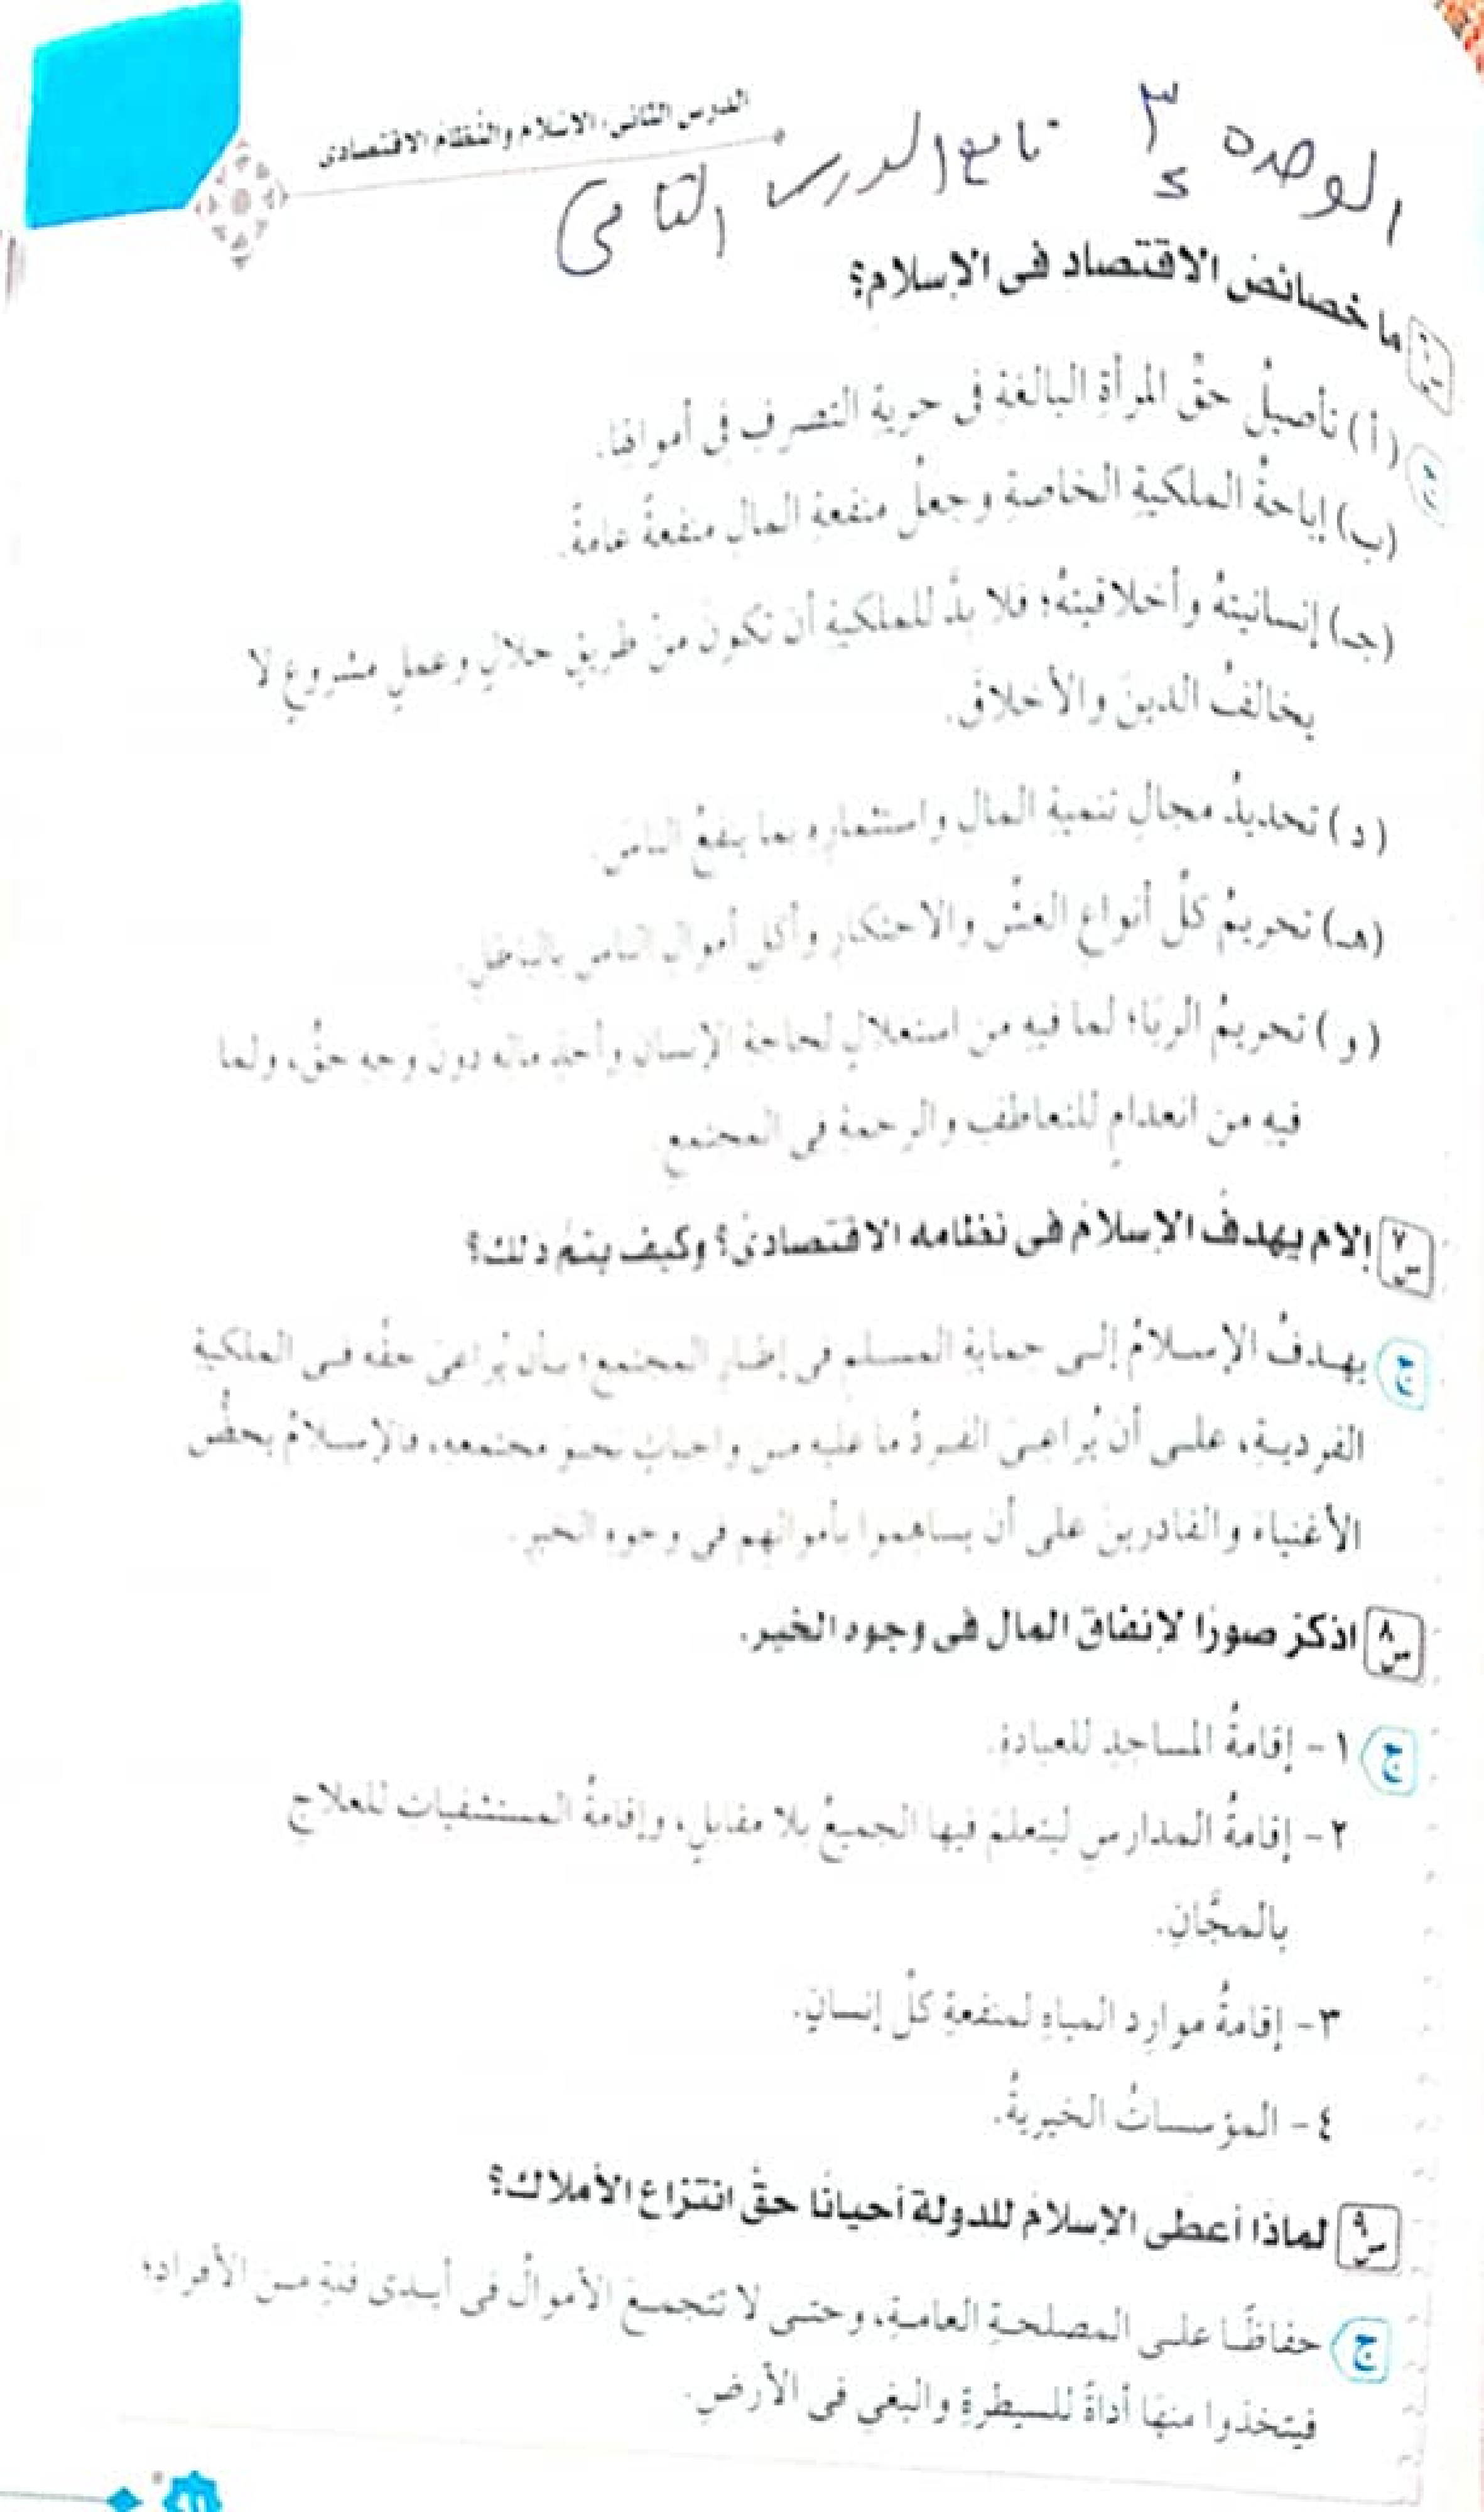 الدرس الثاني: الإسلام والنظام الاقتصادى
الوحده ٣ تابع الدرس الثانى
ما خصائص الاقتصاد فى الإسلام؟
(أ) تأصيلُ حقِّ المرأةِ البالغةِ فى حريةِ التصرفِ فى أموالها.
(ب) إباحةُ الملكيةِ الخاصةِ وجعلُ منفعةِ المالِ منفعةً عامةً.
(جـ) إنسانيتهُ وأخلاقيتهُ؛ فلا بدَّ للملكيةِ أن تكونَ منْ طريقٍ حلالٍ وعملٍ مشروعٍ لا
يخالفُ الدينَ والأخلاقَ.
(د) تحديدُ مجالِ تنميةِ المالِ واستثمارِه بما ينفعُ الناسَ.
(هـ) تحريمُ كلِّ أنواعِ الغشِّ والاحتكارِ وأكلِ أموالِ الناسِ بالباطلِ.
(و) تحريمُ الرِّبَا؛ لما فيهِ من استغلالٍ لحاجةِ الإنسانِ وأخذِ مالِه دونَ وجهِ حقٍّ، ولما
فيهِ من انعدامٍ للتعاطفِ والرحمةِ فى المجتمعِ.
س٧ إلام يهدفُ الإسلامُ فى نظامه الاقتصادىِّ؟ وكيف يتمُّ ذلك؟
ج يهدفُ الإسلامُ إلى حمايةِ المسلمِ فى إطارِ المجتمعِ؛ بأن يُراعَى حقُّه فى الملكيةِ
الفرديةِ، على أن يُراعىَ الفردُ ما عليه من واجباتٍ نحو مجتمعه، فالإسلامُ يحضُّ
الأغنياءَ والقادرينَ على أن يساهموا بأموالهم فى وجوهِ الخيرِ.
س٨ اذكرْ صورًا لإنفاقِ المال فى وجود الخير.
ج ١- إقامةُ المساجدِ للعبادةِ.
٢- إقامةُ المدارسِ ليتعلمَ فيها الجميعُ بلا مقابلٍ، وإقامةُ المستشفياتِ للعلاجِ
بالمجَّانِ.
٣- إقامةُ مواردِ المياهِ لمنفعةِ كلِّ إنسانٍ.
٤- المؤسساتُ الخيريةُ.
س٩ لماذا أعطى الإسلامُ للدولة أحيانًا حقَّ انتزاع الأملاك؟
ج حفاظًا على المصلحةِ العامةِ، وحتى لا تتجمعَ الأموالُ فى أيدى فئةٍ من الأفرادِ؛
فيتخذوا منها أداةً للسيطرةِ والبغى فى الأرضِ.